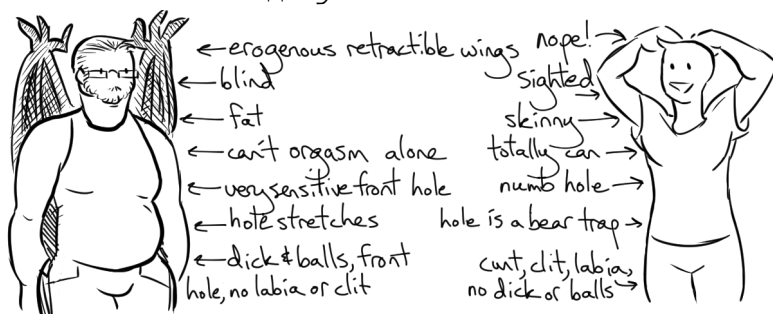 erogenous retractible wings
blind
fat
can't orgasm alone
very sensitive front hole
hole stretches
dick & balls, front
hole, no labia or clit
nope!
sighted
skinny
totally can
numb hole
hole is a bear trap
cunt, clit, labia,
no dick or balls